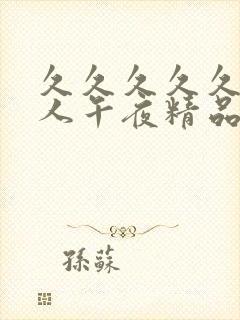 久久久久久
人午夜精品
孫蘇